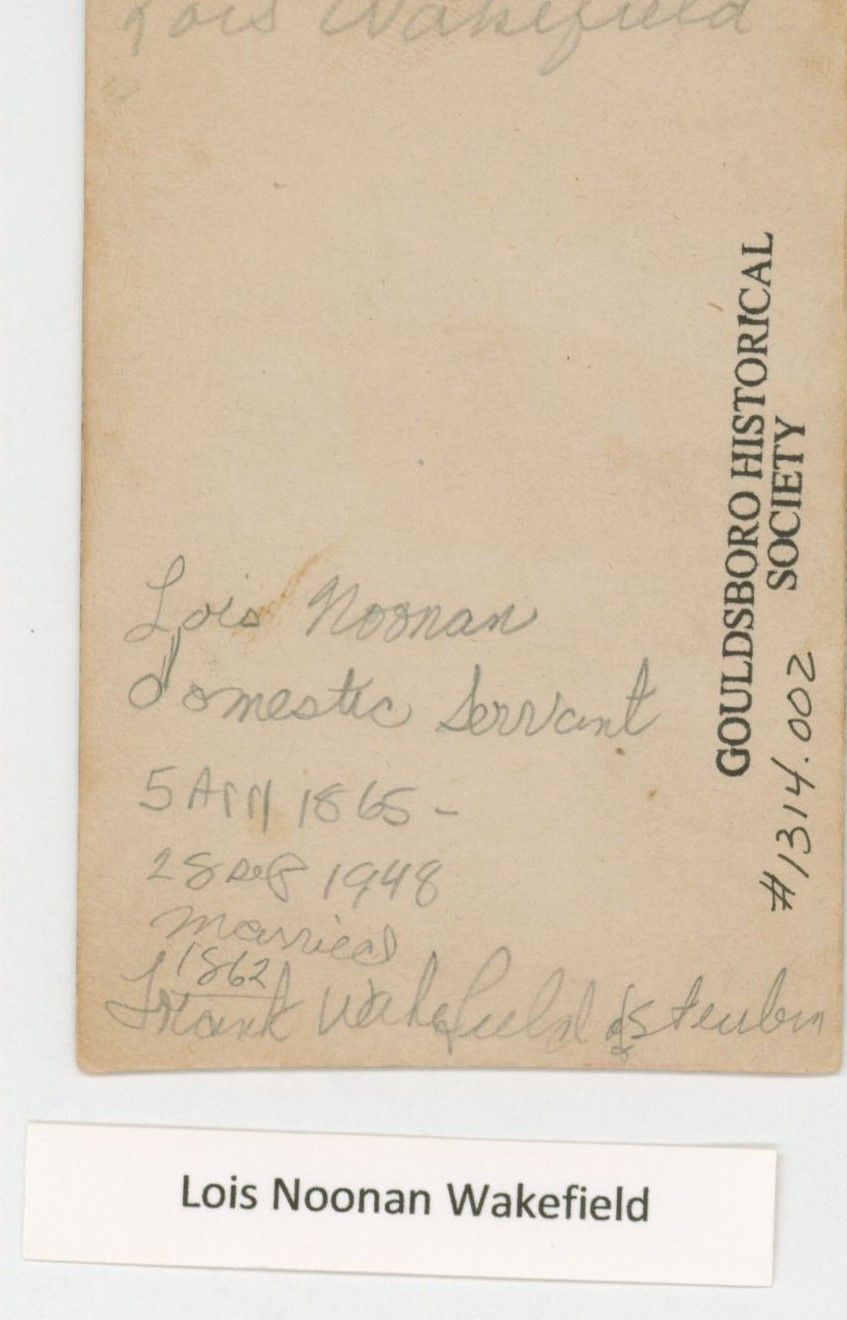 Lois Wakefield
Lois Noonan
domestic Servant
5 April 1865 -
28 Sep 1948
married
1862
Frank Wakefield of Steuben
GOULDSBORO HISTORICAL
SOCIETY
#1314.002
Lois Noonan Wakefield